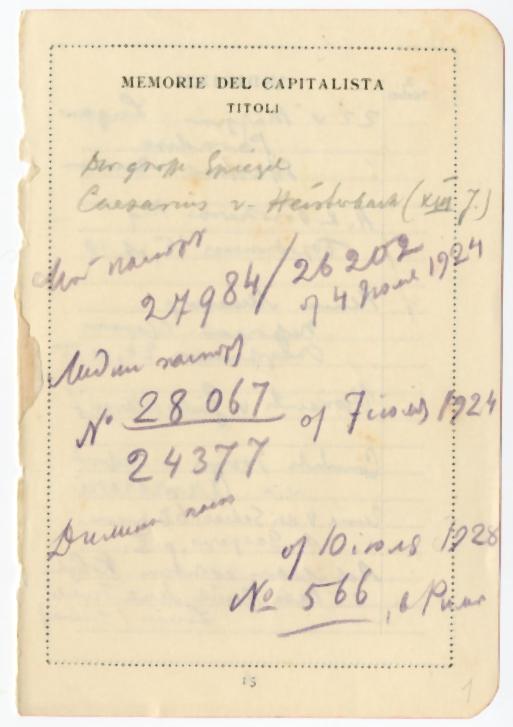 MEMORIE DEL CAPITALISTA
TITOLI
Der große Spiegel
Caesarius v. Heisterbach (XIII J.)
Мой паспорт
27984/26202
от 4 1924
Лидии паспорт
№ 28 067 от 7 июля 1924
24377
от 10 июля 1928
№ 566, в Риме
15
1